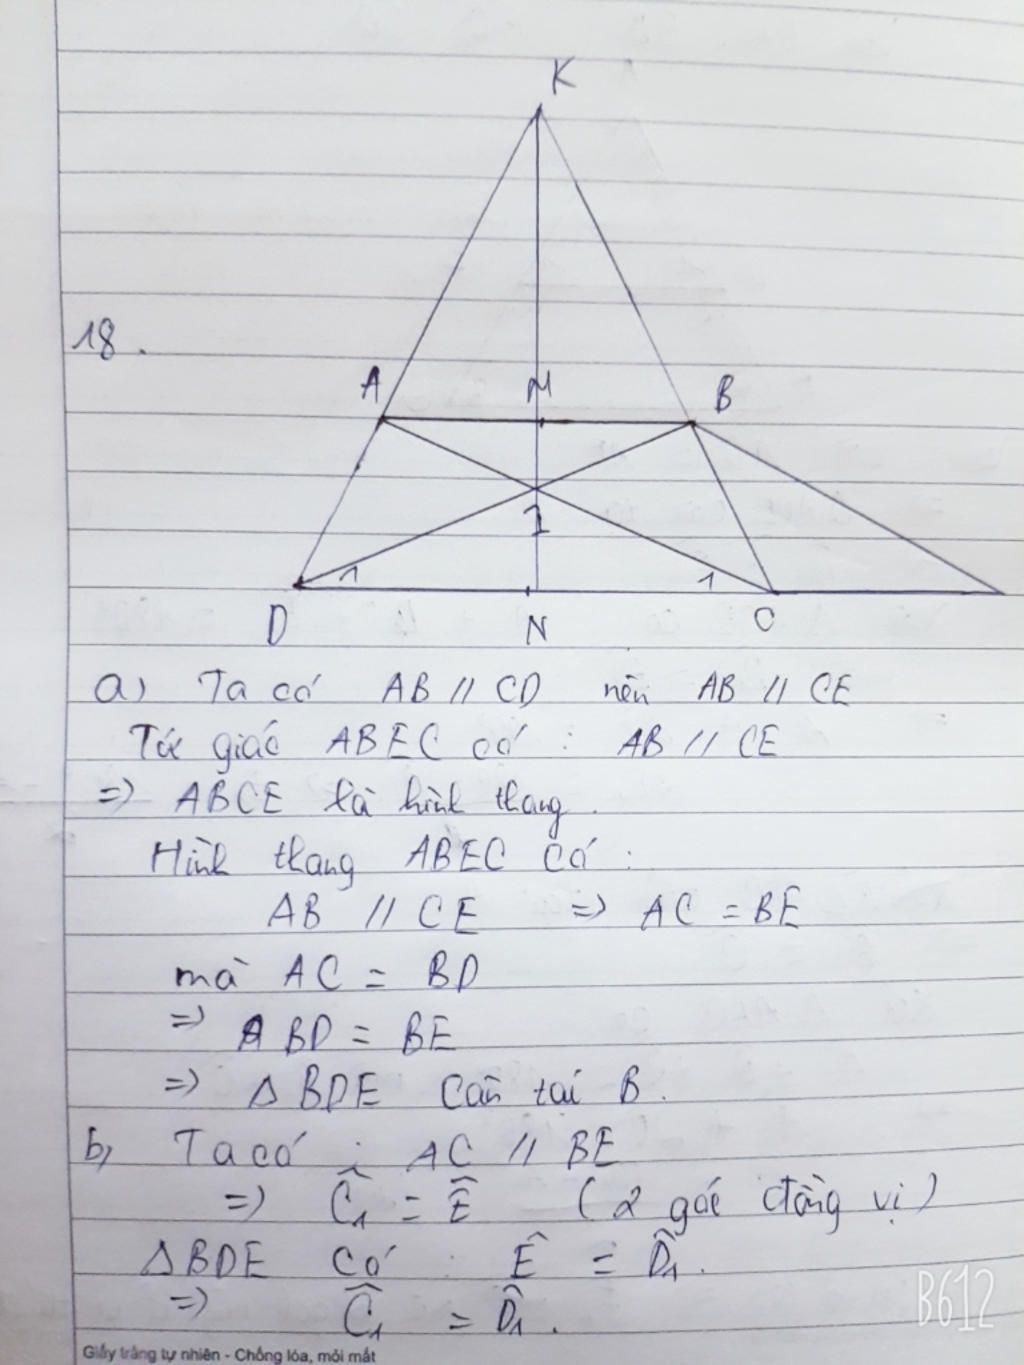 K
18.
A M B
I
1 1
D N C
a) Ta có AB // CD nên AB // CE
Tứ giác ABEC có : AB // CE
=> ABCE là hình thang.
Hình thang ABEC có :
AB // CE => AC = BE
mà AC = BD
=> BD = BE
=> Δ BDE cân tại B.
b, Ta có : AC // BE
=> Ĉ₁ = Ê (2 góc đồng vị)
ΔBDE có : Ê = D̂₁.
=> Ĉ₁ = D̂₁.
B612
Giấy trắng tự nhiên - Chống lóa, mỏi mắt